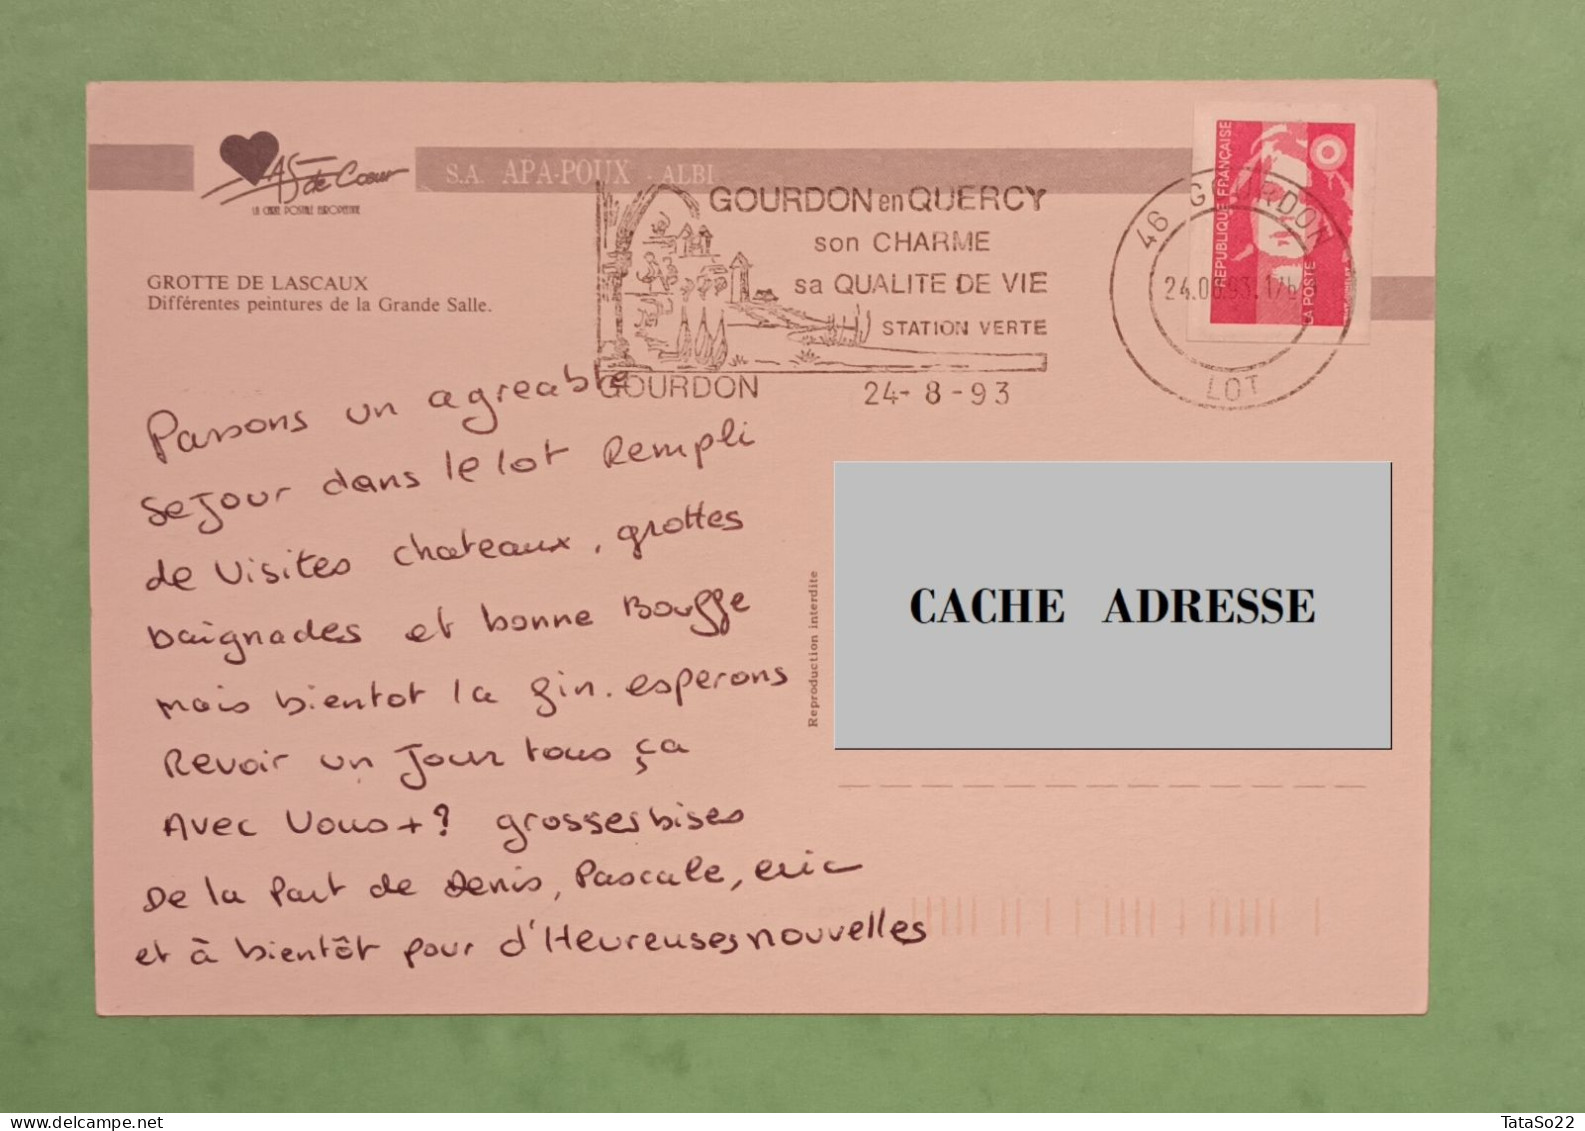 As de Cœur
LA CARTE POSTALE EUROPEENNE
S.A. APA-POUX - ALBI
GROTTE DE LASCAUX
Différentes peintures de la Grande Salle.
GOURDON en QUERCY
son CHARME
sa QUALITE DE VIE
STATION VERTE
GOURDON 24-8-93
46 GOURDON
24.08.93.17h
LOT
REPUBLIQUE FRANÇAISE
LA POSTE
Passons un agreable
Sejour dans le lot Rempli
de Visites chateaux, grottes
baignades et bonne Bouffe
mais bientot la fin. esperons
Revoir un Jour tous ça
Avec Vous + ? grosses bises
De la Part de Denis, Pascale, eric
et à bientôt pour d'Heureuses nouvelles
Reproduction interdite
CACHE ADRESSE
www.delcampe.net
TataSo22